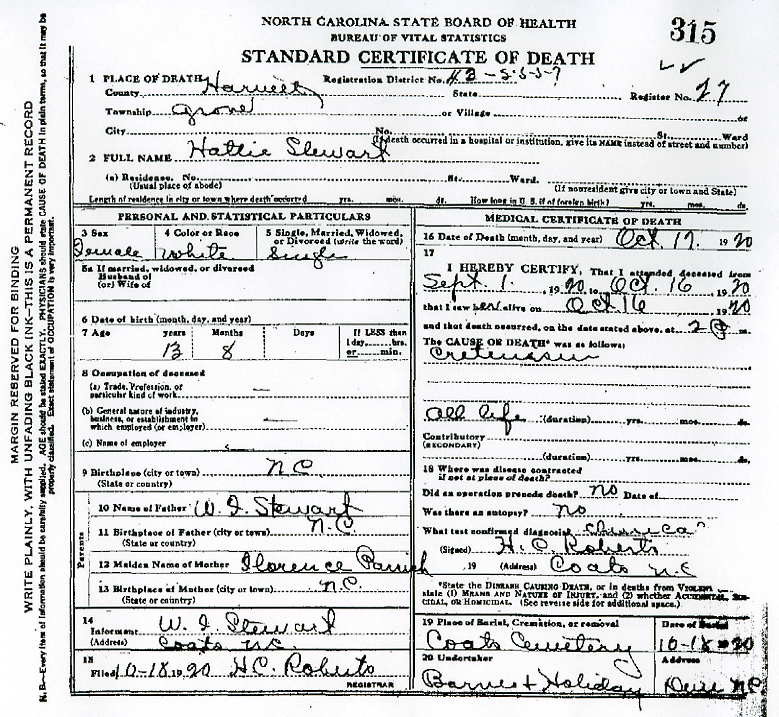 NORTH CAROLINA STATE BOARD OF HEALTH
BUREAU OF VITAL STATISTICS
STANDARD CERTIFICATE OF DEATH
315
1 PLACE OF DEATH
Registration District No. 43-5557
County Harnett State Register No. 27
Township Grove or Village or
City No. St. Ward
(If death occurred in a hospital or institution, give its NAME instead of street and number)
2 FULL NAME Hattie Stewart
(a) Residence. No. St. Ward.
(Usual place of abode) (If nonresident give city or town and State)
Length of residence in city or town where death occurred yrs. mos. ds. How long in U. S. if of foreign birth? yrs. mos. ds.
PERSONAL AND STATISTICAL PARTICULARS
3 Sex 4 Color or Race 5 Single, Married, Widowed, or Divorced (write the word)
Female White Single
5a If married, widowed, or divorced
Husband of
(or) Wife of
6 Date of birth (month, day, and year)
7 Age years Months Days If LESS than
1 day, hrs.
or min.
13 8
8 Occupation of deceased
(a) Trade, Profession, or
particular kind of work
(b) General nature of industry,
business, or establishment in
which employed (or employer)
(c) Name of employer
9 Birthplace (city or town) NC
(State or country)
Parents
10 Name of Father W. I. Stewart
11 Birthplace of Father (city or town) N.C.
(State or country)
12 Maiden Name of Mother Florence Parrish
13 Birthplace of Mother (city or town) N.C.
(State or country)
14
Informant W. I. Stewart
(Address) Coats NC
15
Filed 10-18 1920 H.C. Roberts
REGISTRAR
MEDICAL CERTIFICATE OF DEATH
16 Date of Death (month, day, and year) Oct 17, 1920
17
I HEREBY CERTIFY, That I attended deceased from
Sept 1, 1920 to Oct. 16, 1920
that I saw her alive on Oct 16 1920
and that death occurred, on the date stated above, at 2 P m.
The CAUSE OF DEATH* was as follows:
Cretenism
All life (duration) yrs. mos. ds.
Contributory
(SECONDARY)
(duration) yrs. mos. ds.
18 Where was disease contracted
if not at place of death?
Did an operation precede death? No Date of
Was there an autopsy? No
What test confirmed diagnosis?
(Signed) H.C. Roberts
, 19 (Address) Coats N.C
*State the DISEASE CAUSING DEATH, or in deaths from VIOLENT
state (1) MEANS AND NATURE OF INJURY, and (2) whether ACCIDENTAL, SUI-
CIDAL, OR HOMICIDAL. (See reverse side for additional space.)
19 Place of Burial, Cremation, or removal Date of Burial
Coats Cemetery 10-18 20
20 Undertaker Address
Barnes + Holiday Dunn NC
MARGIN RESERVED FOR BINDING
WRITE PLAINLY, WITH UNFADING BLACK INK—THIS IS A PERMANENT RECORD
N. B.—Every item of information should be carefully supplied. AGE should be stated EXACTLY. PHYSICIANS should state CAUSE OF DEATH in plain terms, so that it may be
properly classified. Exact statement of OCCUPATION is very important.